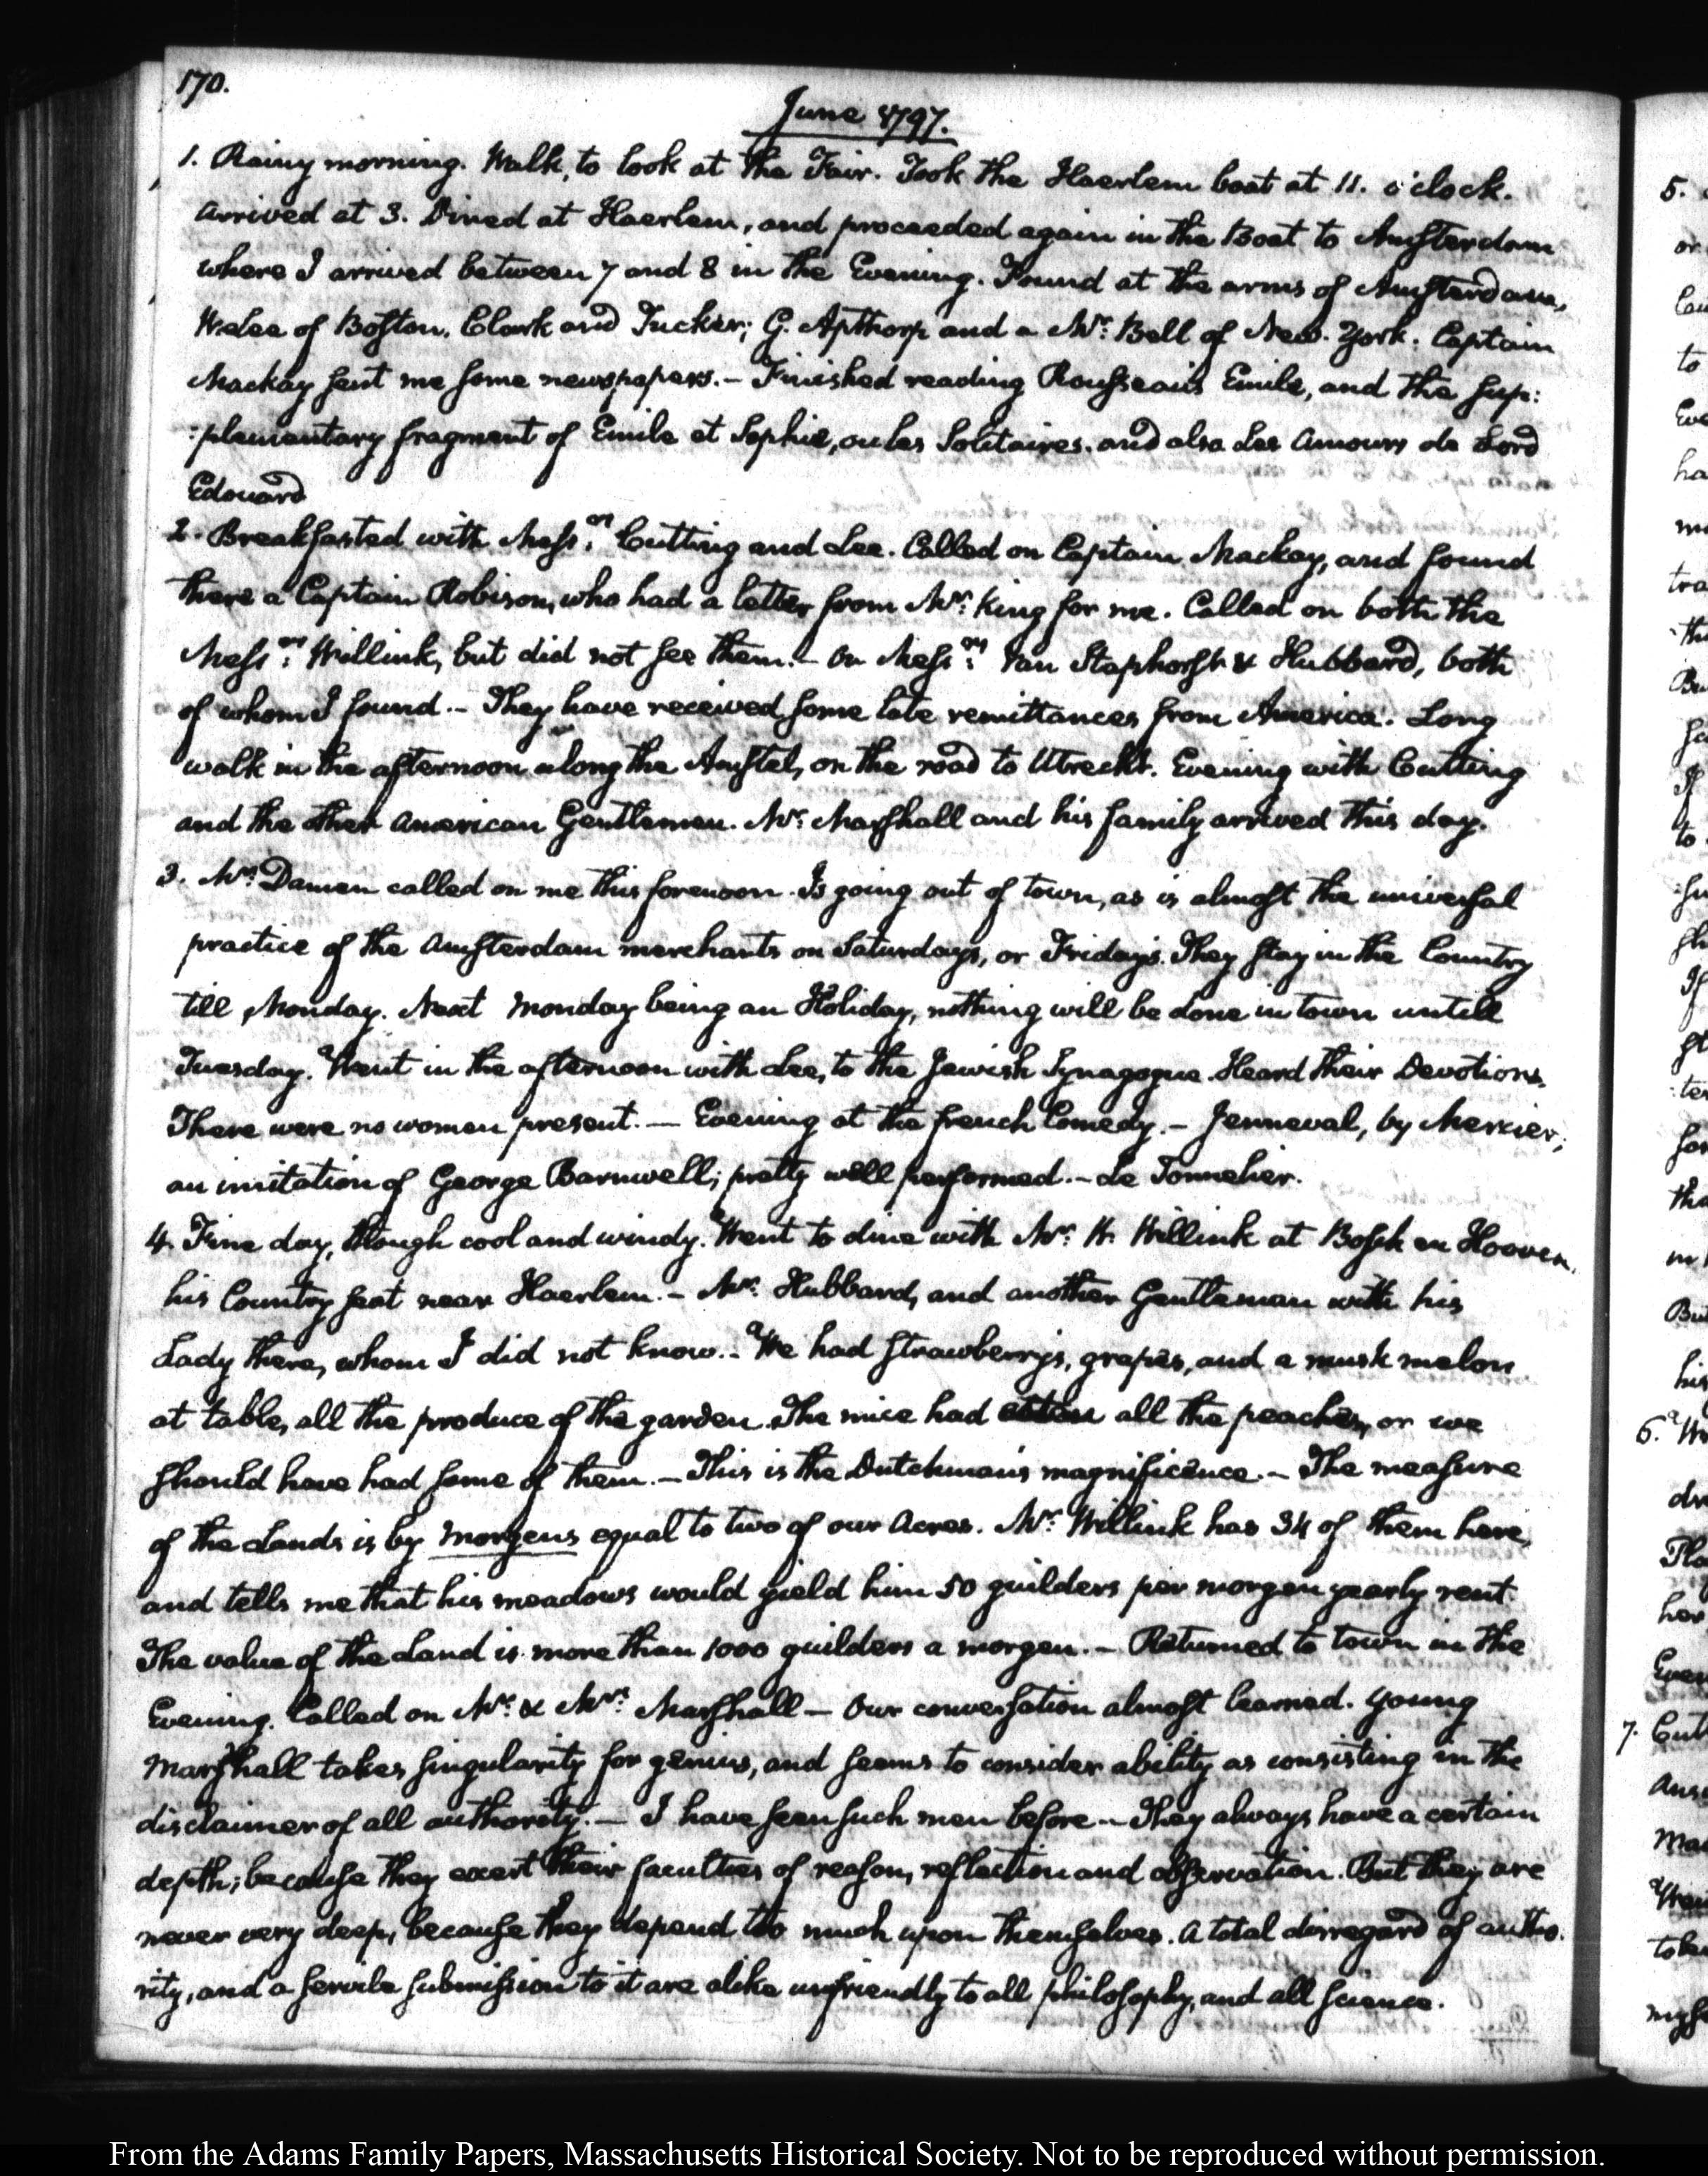 170.
June 1797.
1. Rainy morning. Walk, to look at the Fair. Took the Haerlem boat at 11. o'clock.
arrived at 3. Dined at Haerlem, and proceeded again in the Boat to Amsterdam
where I arrived between 7 and 8 in the Evening. Found at the arms of Amsterdam,
W. Lee of Boston. Clark and Tucker; G. Apthorp and a Mr: Bell of New-York. Captain
Mackay sent me some newspapers.— Finished reading Rousseau's Emile, and the sup:
:plementary fragment of Emile et Sophie, ou les Solitaires. and also Les Amours de Lord
Edouard
2. Breakfasted with Messrs: Cutting and Lee. Called on Captain Mackay, and found
there a Captain Robison, who had a letter from Mr: King for me. Called on both the
Messrs: Willink, but did not see them.— On Messrs: Van Staphorst & Hubbard, both
of whom I found.— They have received some late remittances from America. Long
walk in the afternoon along the Amstel, on the road to Utrecht. Evening with Cutting
and the other American Gentlemen. Mr: Marshall and his family arrived this day.
3. Mr: Damen called on me this forenoon. Is going out of town, as is almost the universal
practice of the Amsterdam merchants on Saturdays, or Fridays. They stay in the Country
till Monday. Next Monday being an Holiday, nothing will be done in town untill
Tuesday. Went in the afternoon with Lee, to the Jewish Synagogue. Heard their Devotions.
There were no women present.— Evening at the french Comedy.— Jenneval, by Mercier;
an imitation of George Barnwell; pretty well performed.— Le Tonnelier.
4. Fine day, though cool and windy. Went to dine with Mr: W. Willink at Bosch en Hooven.
his Country seat near Haerlem.— Mr: Hubbard, and another Gentleman with his
Lady there, whom I did not know.— We had strawberrys, grapes, and a musk melon
at table, all the produce of the garden. The mice had eaten all the peaches, or we
should have had some of them.— This is the Dutchman's magnificence.— The measure
of the Lands is by morgens equal to two of our Acres. Mr: Willink has 34 of them here,
and tells me that his meadows would yield him 50 guilders per morgen yearly rent.
The value of the Land is more than 1000 guilders a morgen.— Returned to town in the
Evening. Called on Mr: & Mrs: Marshall— Our conversation almost learned. Young
Marshall takes singularity for genius, and seems to consider ability as consisting in the
disclaimer of all authority.— I have seen such men before— They always have a certain
depth; because they exert their faculties of reason, reflection and observation. But they are
never very deep, because they depend too much upon themselves. A total disregard of autho.
rity, and a servile submission to it are alike unfriendly to all philosophy, and all science.
From the Adams Family Papers, Massachusetts Historical Society. Not to be reproduced without permission.